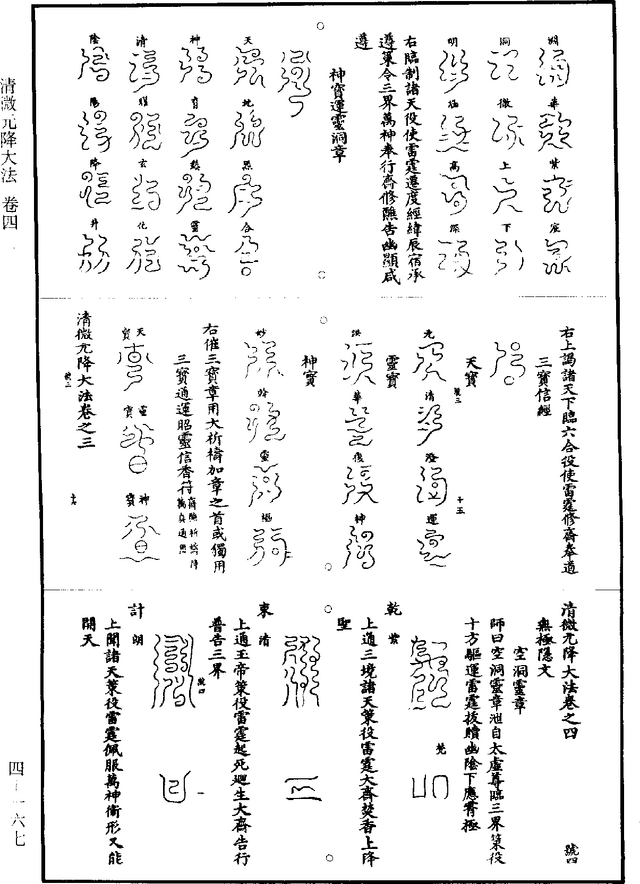 朔 華 紫 宸
洞 微 上 下
明 涵 高 深
右臨制諸天役使雷霆遷度經緯辰宿承
遵策令三界萬神奉行齋修醮告幽顯咸
遵
神寶運靈洞章
天 地 照 合
神 育 熟 靈
清 耀 玄 化
陰 陽 降 升
右上謁諸天下臨六合役使雷霆修齋奉道
三寶信經
天寶
元 清 澄 運
靈寶
洪 華 後 神
神寶
妙 齡 靈
右催三寶章用大祈禱加章之首或獨用
三寶通運昭靈信香符
天寶 靈寶 神寶
清微元降大法卷之三
清微元降大法卷之四 號四
無極隱文
空洞靈章
師曰空洞靈章泄自太虛尊臨三界策役
十方驅運雷霆拔贖幽陰下應霄極
乾 紫 梵
上通三境諸天策役雷霆大齋焚香上降
聖
東 清
上通玉帝策役雷霆起死迴生大齋告行
普告三界
計 朗
上聞諸天策役雷霆佩服萬神衛形又能
開天
清微元降大法 卷四
四一一六七